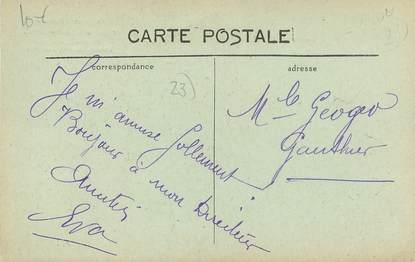 10-
CARTE POSTALE
correspondance
adresse
23)
Je m'amuse follement
Bonjour à mon Directeur
Amitiés
Eva
Mlle Géogeo
Gauthier